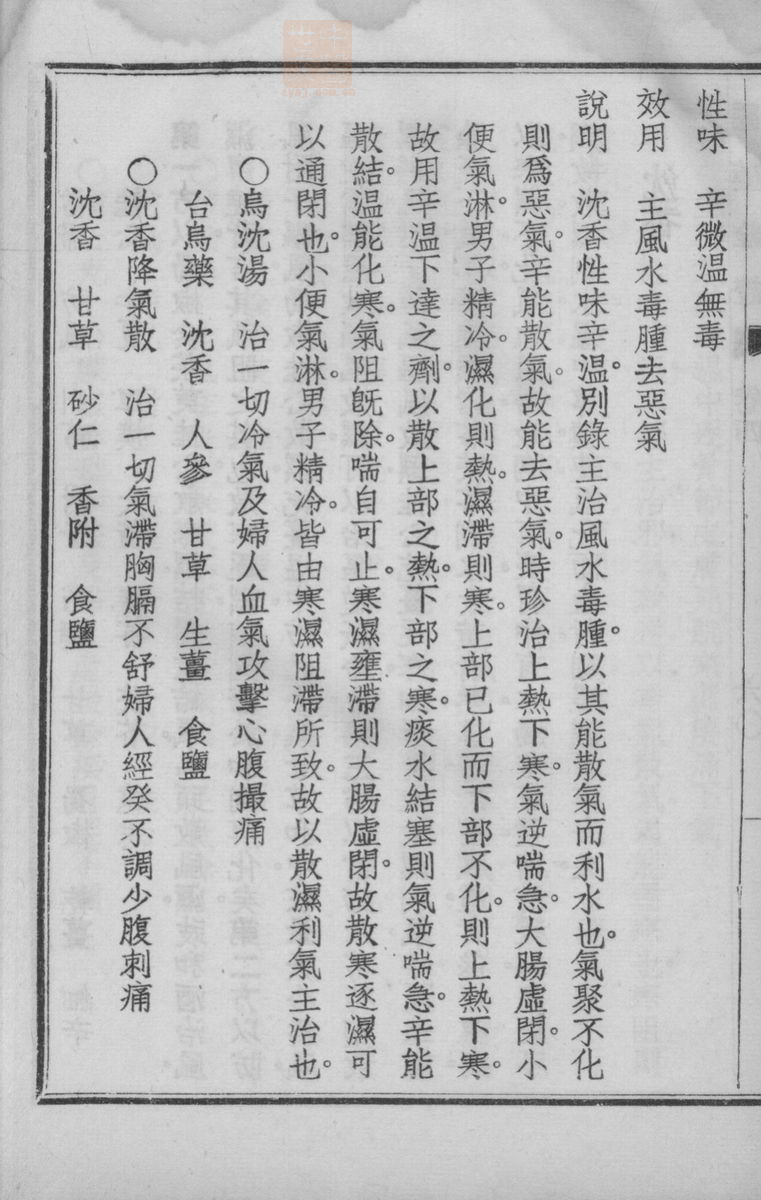 性味　辛微溫無毒
效用　主風水毒腫去惡氣
說明　沈香性味辛溫。別錄主治風水毒腫。以其能散氣而利水也。氣聚不化
則爲惡氣。辛能散氣。故能去惡氣。時珍治上熱下寒。氣逆喘急。大腸虛閉。小
便氣淋。男子精冷。濕化則熱。濕滯則寒。上部已化而下部不化。則上熱下寒。
故用辛溫下達之劑。以散上部之熱。下部之寒。痰水結塞則氣逆喘急。辛能
散結。溫能化寒。氣阻旣除。喘自可止。寒濕壅滯則大腸虛閉。故散寒逐濕可
以通閉也。小便氣淋。男子精冷。皆由寒濕阻滯所致。故以散濕利氣主治也。
〇烏沈湯　治一切冷氣及婦人血氣攻擊心腹撮痛
台烏藥　沈香　人參　甘草　生薑　食鹽
〇沈香降氣散　治一切氣滯胸膈不舒婦人經癸不調少腹刺痛
沈香　甘草　砂仁　香附　食鹽